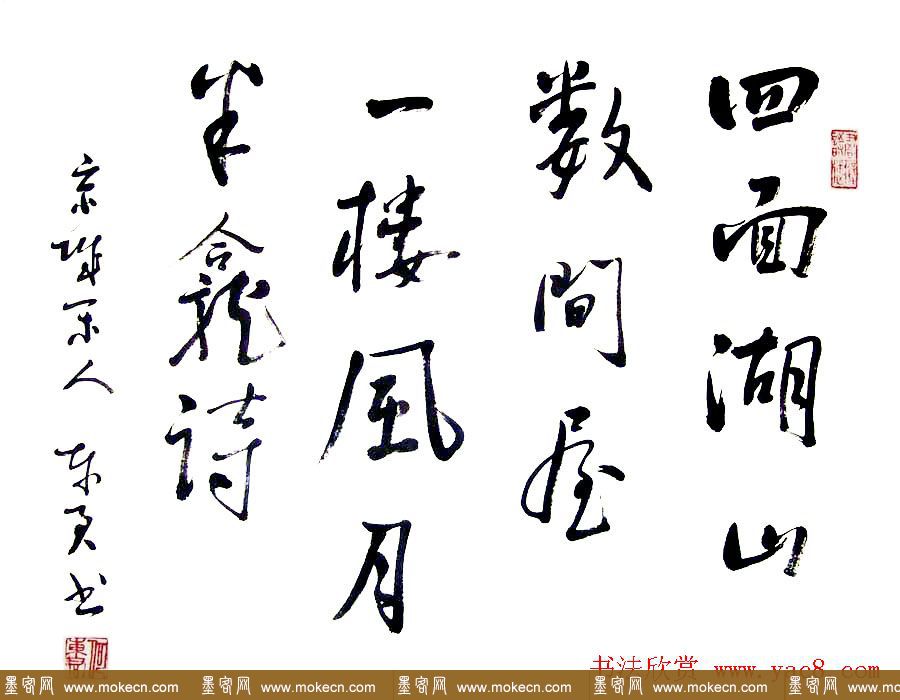 四面湖山
数間屋
一楼風月
半龕詩
京城军人 东昊书
书法欣赏 www.yac8.com
墨客网 www.mokecn.com 墨客网 www.mokecn.com 墨客网 www.mokecn.com 墨客网 www.mokecn.com